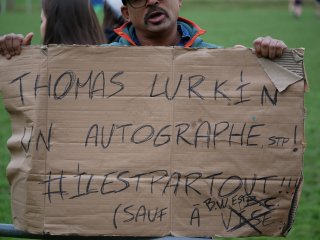 THOMAS LURKIN
UN AUTOGRAPHE, STP!
#ILESTPARTOUT!!!
(SAUF À